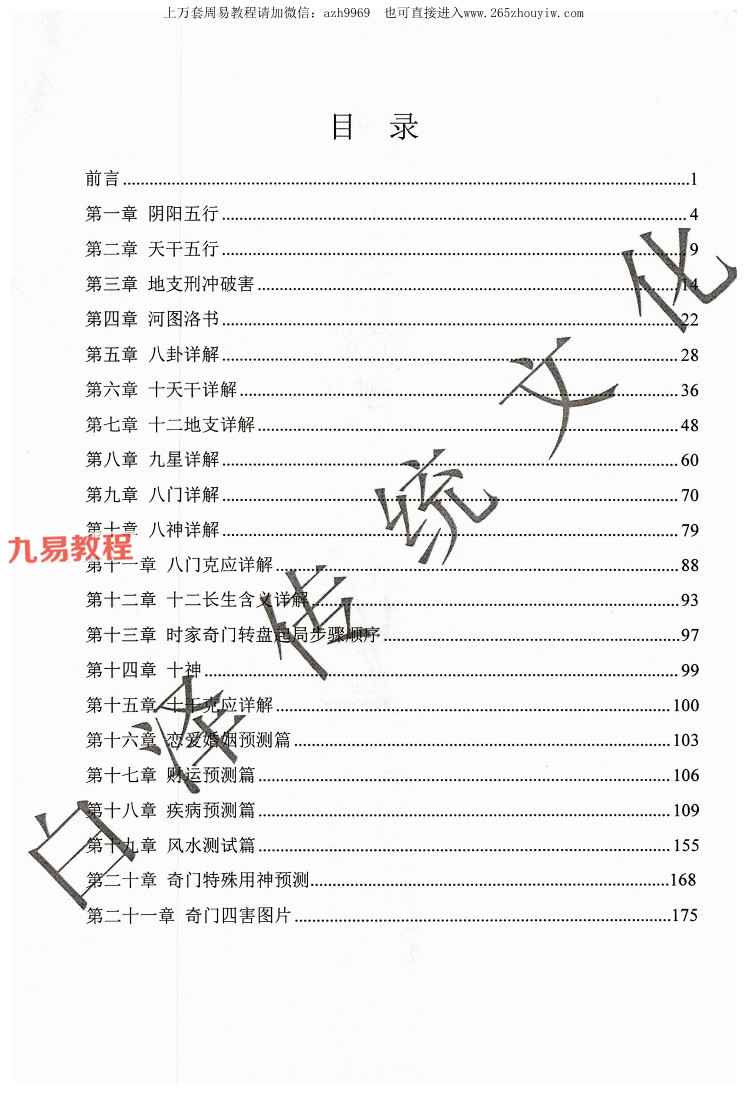 上万套周易教程请加微信: azh9969 也可直接进入www.265zhouyiw.com
目 录
前言........1
第一章 阴阳五行........4
第二章 天干五行........9
第三章 地支刑冲破害........14
第四章 河图洛书........22
第五章 八卦详解........28
第六章 十天干详解........36
第七章 十二地支详解........48
第八章 九星详解........60
第九章 八门详解........70
第十章 八神详解........79
九易教程
第十一章 八门克应详解........88
第十二章 十二长生含义详解........93
第十三章 时家奇门转盘起局步骤顺序........97
第十四章 十神........99
第十五章 十干克应详解........100
第十六章 恋爱婚姻预测篇........103
第十七章 财运预测篇........106
第十八章 疾病预测篇........109
第十九章 风水测试篇........155
第二十章 奇门特殊用神预测........168
第二十一章 奇门四害图片........175
白泽传统文化